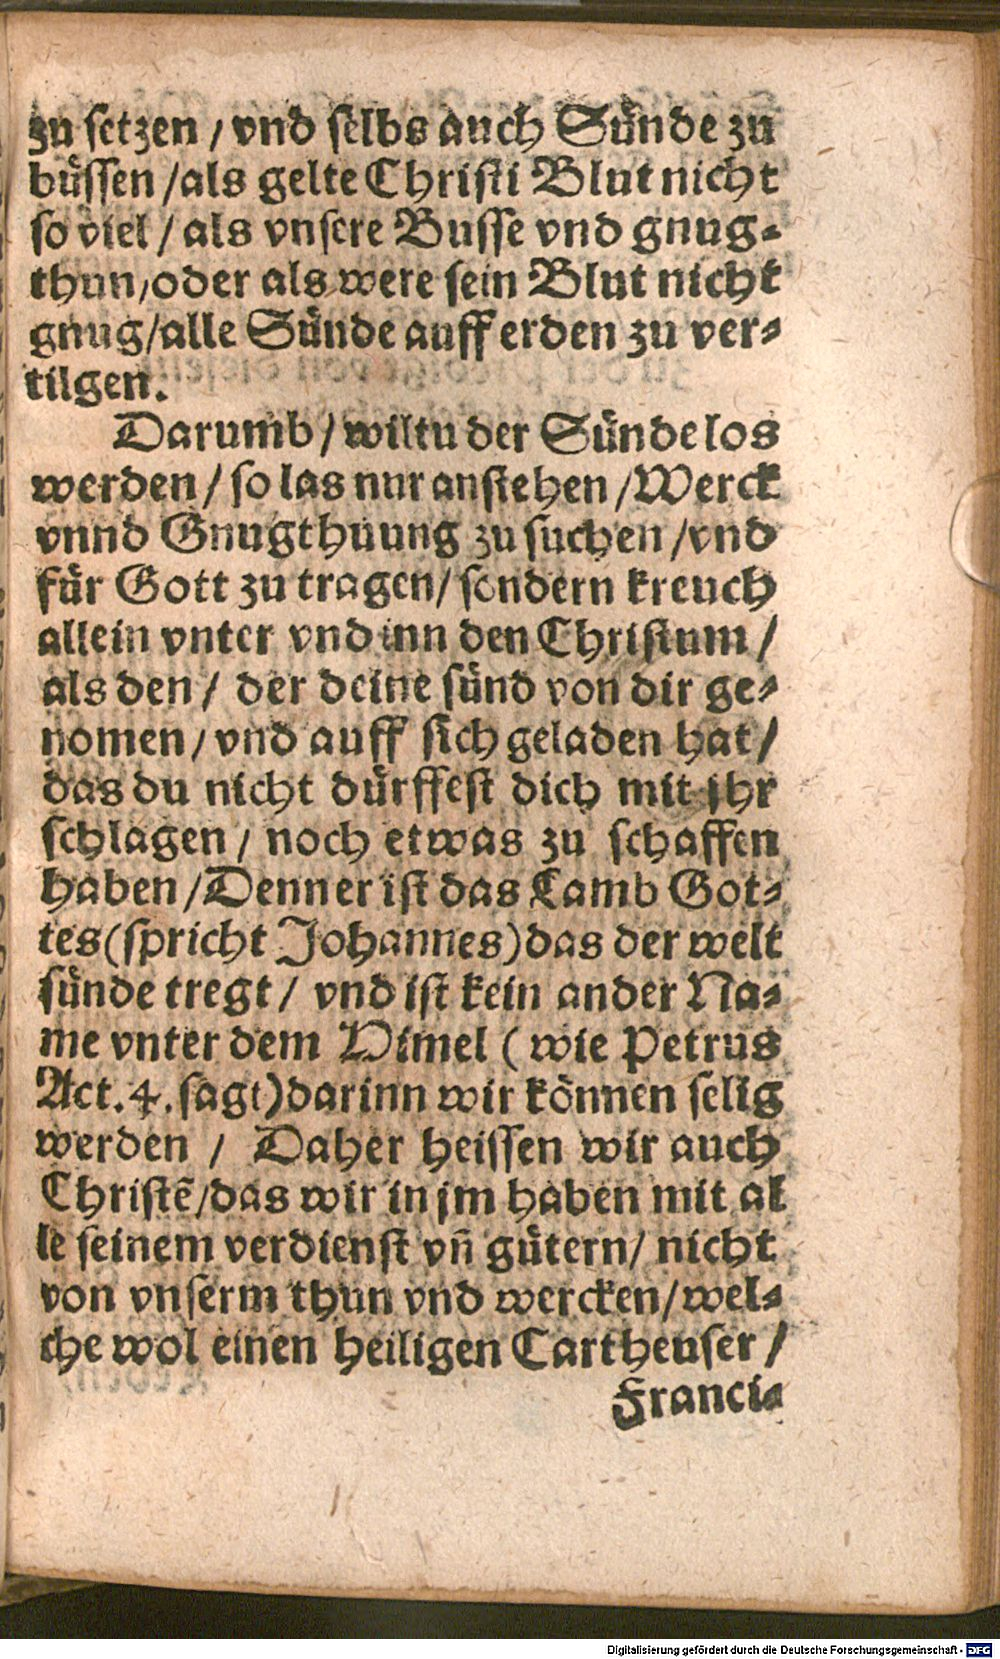 zu setzen / vnd selbs auch Sünde zu
büssen / als gelte Christi Blut nicht
so viel / als vnsere Busse vnd gnug-
thun / oder als were sein Blut nicht
gnug / alle Sünde auff erden zu ver-
tilgen.
Darumb / wiltu der Sünde los
werden / so las nur anstehen / Werck
vnnd Gnugthuung zu suchen / vnd
für Gott zu tragen / sondern kreuch
allein vnter vnd inn den Christum /
als den / der deine sünd von dir ge-
nomen / vnd auff sich geladen hat /
das du nicht dürffest dich mit jhr
schlagen / noch etwas zu schaffen
haben / Denn er ist das Lamb Got-
tes (spricht Johannes) das der welt
sünde tregt / vnd ist kein ander Na-
me vnter dem Himel ( wie Petrus
Act. 4. sagt) darinn wir können selig
werden / Daher heissen wir auch
Christẽ / das wir in jm haben mit al
le seinem verdienst vñ gütern / nicht
von vnserm thun vnd wercken / wel-
che wol einen heiligen Cartheuser /
Franci-
Digitalisierung gefördert durch die Deutsche Forschungsgemeinschaft - DFG